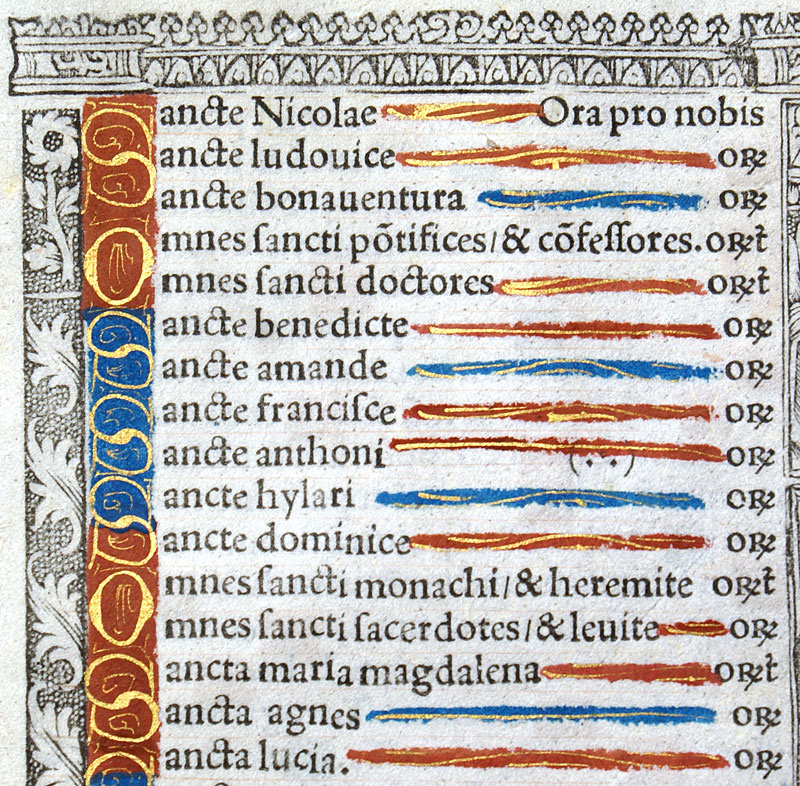 Sancte Nicolae Ora pro nobis
Sancte ludouice oꝶ
Sancte bonauentura oꝶ
Omnes ſancti põtifices/ & cõfeſſores. oꝶt
Omnes ſancti doctores oꝶt
Sancte benedicte oꝶ
Sancte amande oꝶ
Sancte franciſce oꝶ
Sancte anthoni oꝶ
Sancte hylari oꝶ
Sancte dominice oꝶ
Omnes ſancti monachi/ & heremite oꝶt
Omnes ſancti ſacerdotes/ & leuite oꝶ
Sancta maria magdalena oꝶt
Sancta agnes oꝶ
Sancta lucia. oꝶ